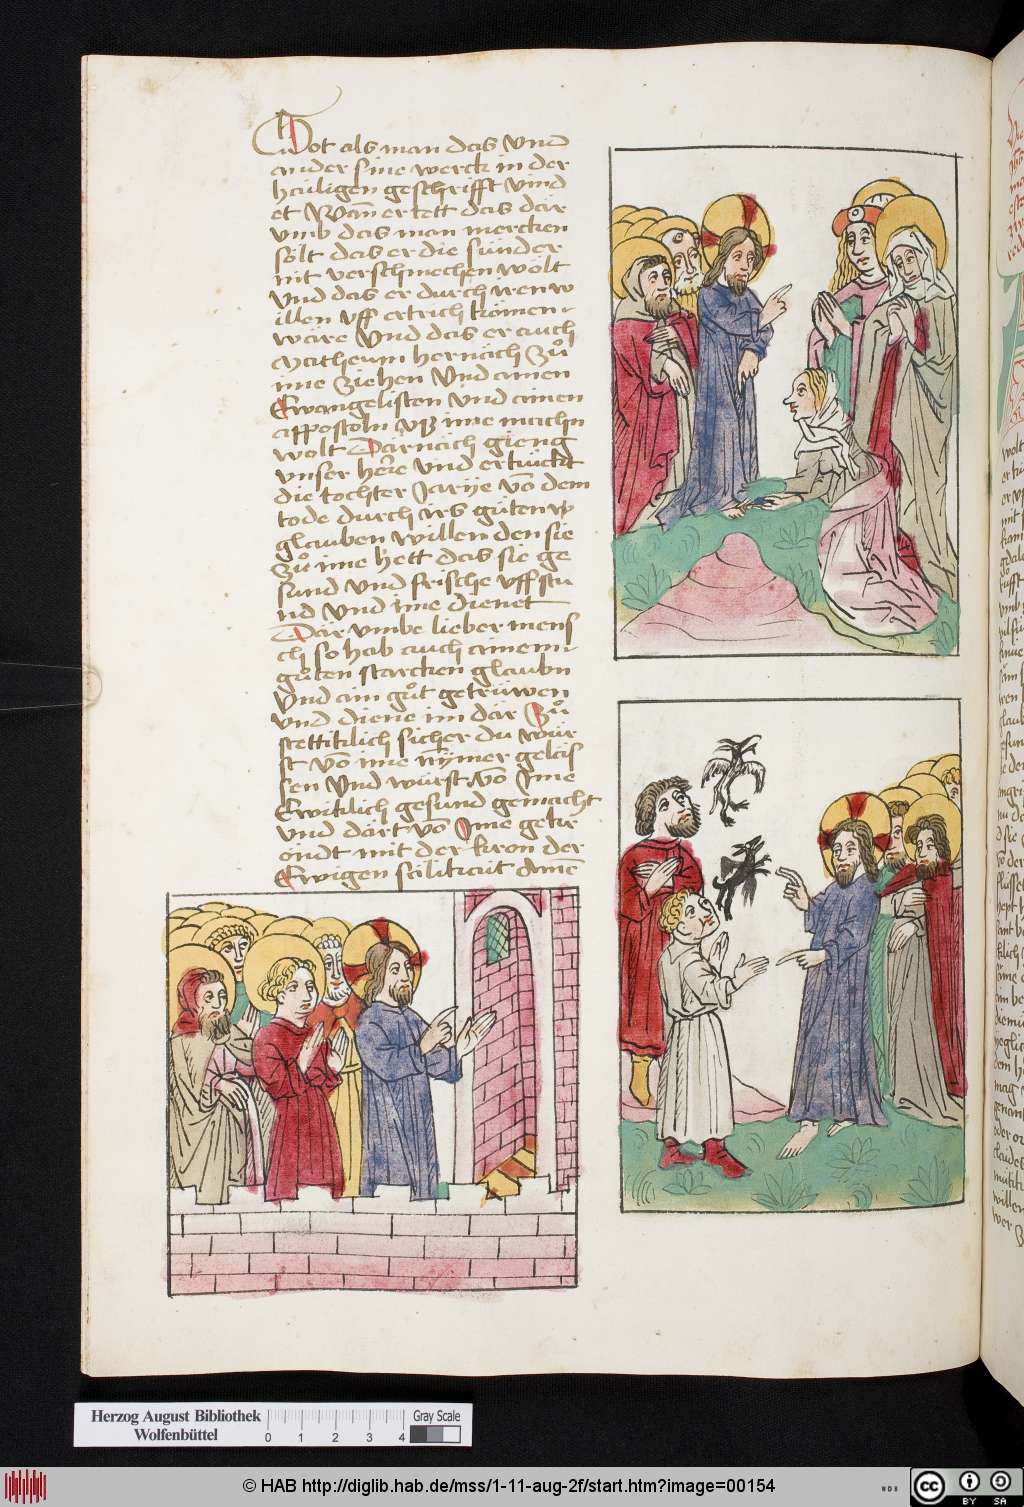 Got als man das vnnd
ander sine werck in der
hailigen geschrifft vind
et Wan̄ er tett das dār
vmb das man mercken
sōlt das er die sünder
nit verschmechen wolt
Vnd das er durch iren w
illen vff ertrich komen
wäre Vnd das er auch
Matheum hernāch zů
ime ziehen Vnd ainen
Ewangelisten vnd ainen
appostoln vß ime machn
wolt Dārnāch gieng
vnser her̄e vnd erkückt
die tochter Jarije vō dem
tode durch irs gůten w
glauben willen den sie
zů ime hett das sie ge
sund vnd frische vff stu
nd vnd ime dienet
Dār vmbe lieber mens
ch so hab auch ainem
gůten starcken glaubn
Vnd ain gůt getrüwen
vnd diene im dār Zů
stettiklich sicher du wür
st vō ime nȳmer gelās
sen Vnd würst vō Jme
Ewiklich gesund gemacht
vnd dārt vō Jme gekr
ōndt mit der kron der
Ewigen sälikait Amē
Herzog August Bibliothek
Wolfenbüttel
0 1 2 3 4
Gray Scale
© HAB http://diglib.hab.de/mss/1-11-aug-2f/start.htm?image=00154
cc BY SA